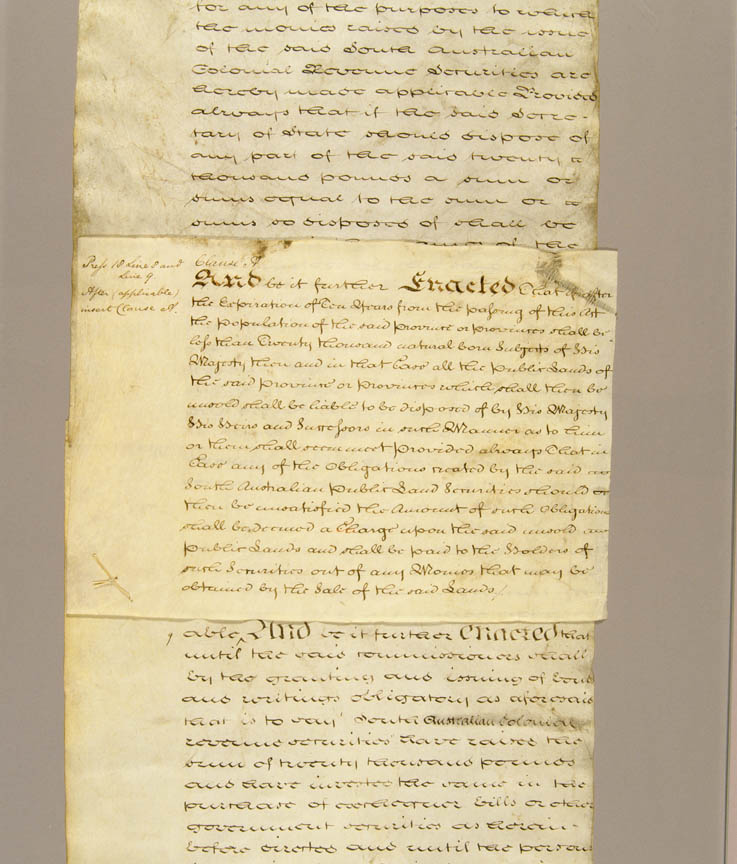 for any of the purposes to which
the monies raised by the issue
of the said South Australian
Colonial Revenue Securities are
hereby made applicable Provided
always that if the said Secre-
tary of State should dispose of
any part of the said twenty
thousand pounds a sum or
sums equal to the sum or
sums so disposed of shall be
of the
Press 18 Line 8 and
Line 9
After (applicable)
insert Clause A.
Clause A
And be it further Enacted That if after
the Expiration of Ten Years from the passing of this Act
the Population of the said Province or Provinces shall be
less than Twenty thousand natural born Subjects of His
Majesty then and in that Case all the Public Lands of
the said Province or Provinces which shall then be
unsold shall be liable to be disposed of by His Majesty
His Heirs and Successors in such Manner as to him
or them shall seem meet Provided always That in
Case any of the Obligations created by the said
South Australian Public Land Securities should
then be unsatisfied the Amount of such Obligations
shall be deemed a Charge upon the said unsold
Public Lands and shall be paid to the Holders of
such Securities out of any Monies that may be
obtained by the Sale of the said Lands
9 able And be it further enacted that
until the said commissioners shall
by the granting and issuing of bonds
and writings obligatory as aforesaid
that is to say South Australian Colonial
revenue securities have raised the
sum of twenty thousand pounds
and have invested the same in the
purchase of exchequer bills or other
government securities as herein-
before directed and until the person